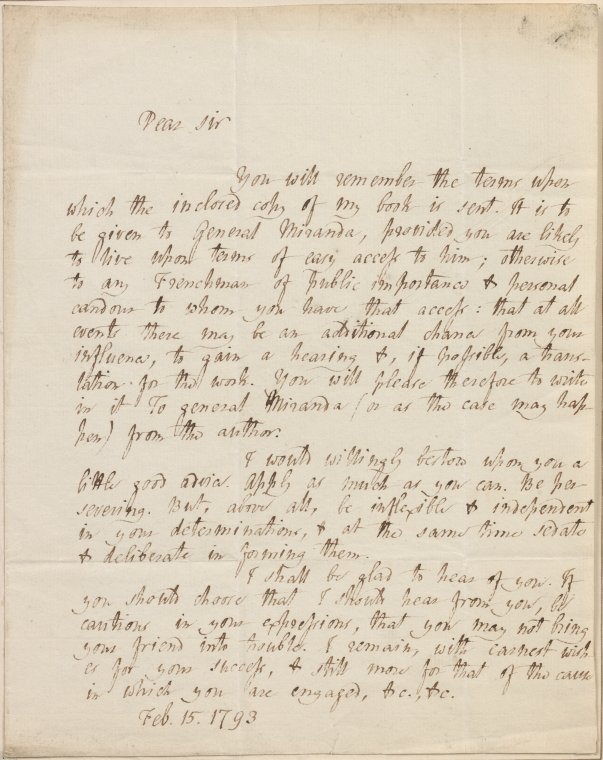 Dear Sir
You will remember the terms upon
which the inclosed copy of my book is sent. It is to
be given to General Miranda, provided you are likely
to live upon terms of easy access to him; otherwise
to any Frenchman of public importance & personal
candour to whom you have that access: that at all
events there may be an additional chance from your
influence, to gain a hearing &, if possible, a trans-
lation for the work. You will please therefore to write
in it To general Miranda (or as the case may hap-
pen) from the author.
I would willingly bestow upon you a
little good advice. Apply as much as you can. Be per-
severing. But, above all, be inflexible & independent
in your determinations, & at the same time sedate
& deliberate in forming them.
I shall be glad to hear of you. If
you should choose that I should hear from you, be
cautious in your expressions, that you may not bring
your friend into trouble. I remain, with earnest wish-
es for your success, & still more for that of the cause
in which you are engaged, &c., &c.
Feb. 15. 1793